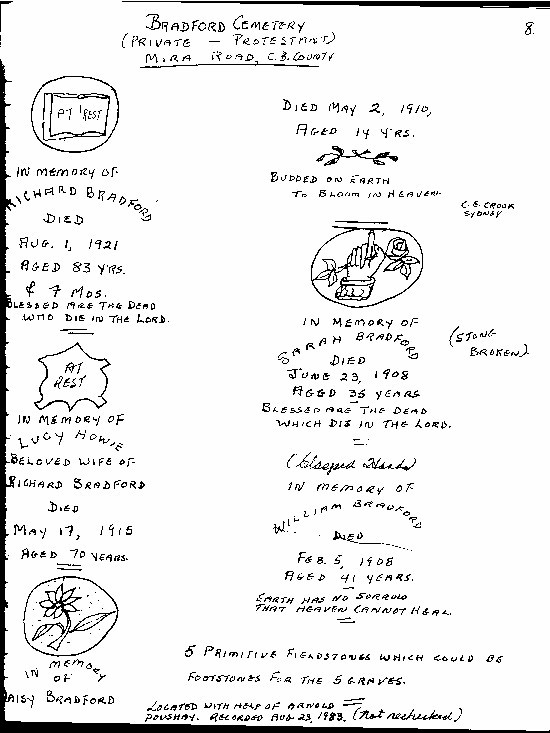 8.
BRADFORD CEMETERY
(PRIVATE — PROTESTANT)
MIRA ROAD, C.B. COUNTY
AT REST
IN MEMORY OF
RICHARD BRADFORD
DIED
AUG. 1, 1921
AGED 83 YRS.
& 7 MOS.
BLESSED ARE THE DEAD
WHO DIE IN THE LORD.
AT
REST
IN MEMORY OF
LUCY HOWIE
BELOVED WIFE OF
RICHARD BRADFORD
DIED
MAY 17, 1915
AGED 70 YEARS.
IN MEMORY
OF
DAISY BRADFORD
DIED MAY 2, 1910,
AGED 14 YRS.
BUDDED ON EARTH
TO BLOOM IN HEAVEN.
C.E. CROOK
SYDNEY
IN MEMORY OF
SARAH BRADFORD
DIED
JUNE 23, 1908
AGED 35 YEARS
BLESSED ARE THE DEAD
WHICH DIE IN THE LORD.
(STONE
BROKEN)
(Clasped Hands)
IN MEMORY OF
WILLIAM BRADFORD
DIED
FEB. 5, 1908
AGED 41 YEARS.
EARTH HAS NO SORROW
THAT HEAVEN CANNOT HEAL.
5 PRIMITIVE FIELDSTONES WHICH COULD BE
FOOTSTONES FOR THE 5 GRAVES.
LOCATED WITH HELP OF ARNOLD
POUSHAY. RECORDED AUG. 23, 1983. (Not rechecked)